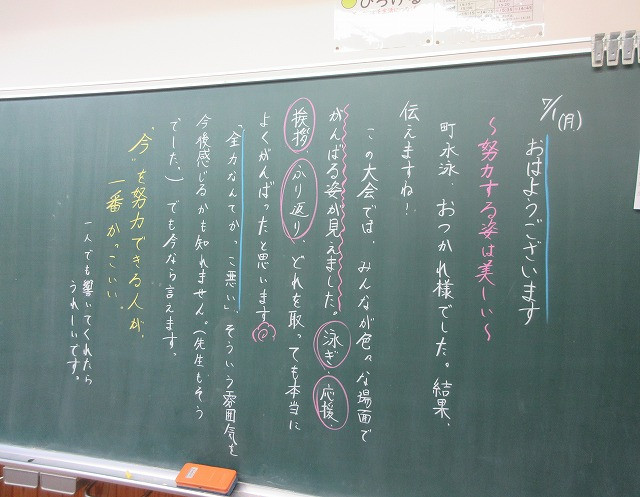 ひろげる
7/1(月)
おはようございます
～努力する姿は美しい～
町水泳、おつかれ様でした。結果、
伝えますね！
この大会では、みんなが色々な場面で
がんばる姿が見えました。泳ぎ、応援、
挨拶、ふり返り、どれを取っても本当に
よくがんばったと思います
「全力なんてかっこ悪い」、そういう雰囲気を
今後感じるかも知れません。(先生もそう
でした。)でも今なら言えます。
"今"を努力できる人が、
一番かっこいい。
一人でも響いてくれたら
うれしいです。